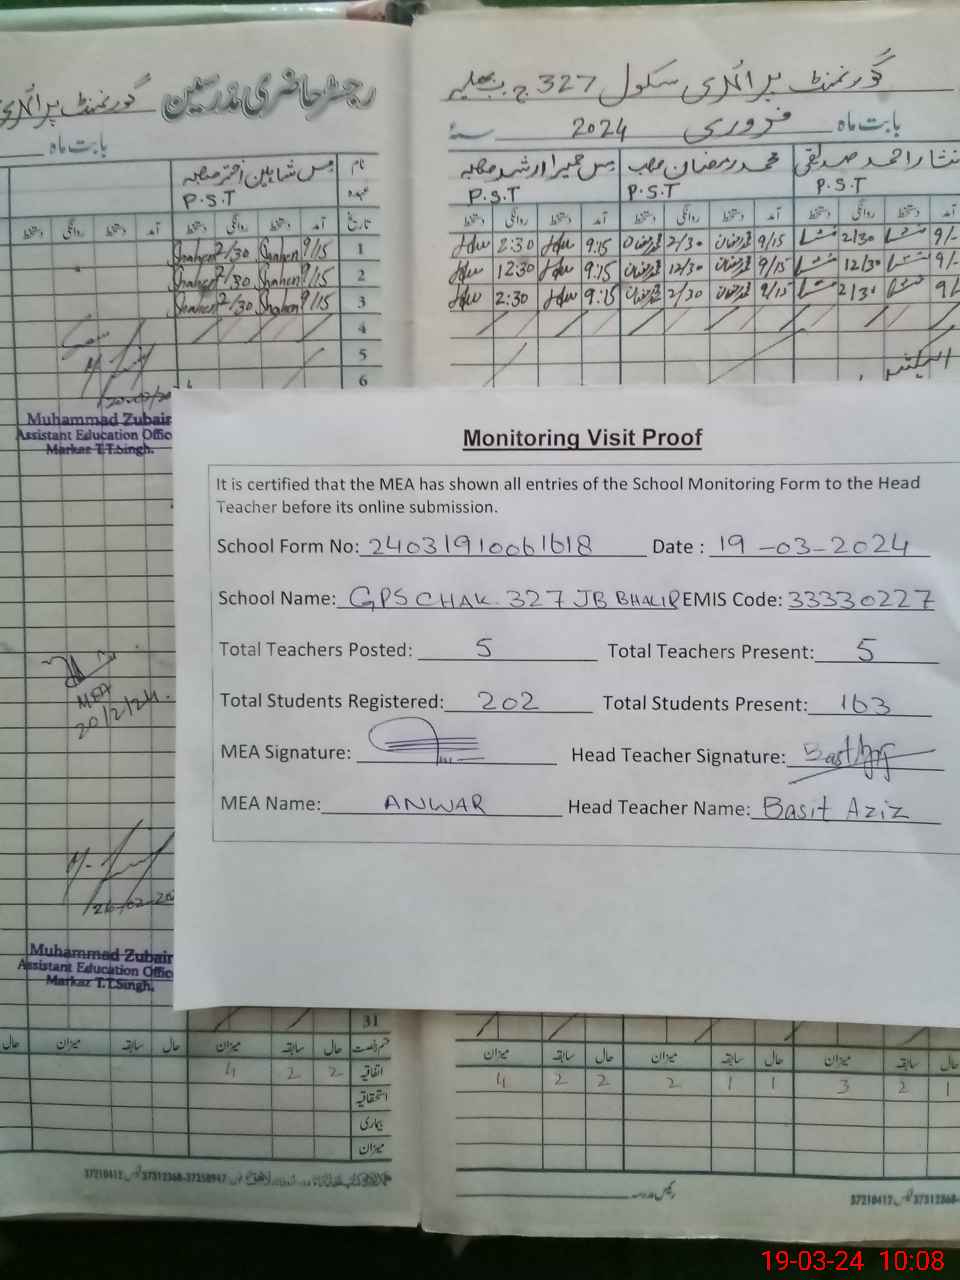 رجسٹر حاضری مدرسین گورنمنٹ پرائمری
بابت ماہ
نام
مس شاہین اختر صاحبہ
عہدہ
P.S.T
تاریخ آمد دستخط روانگی دستخط آمد دستخط روانگی دستخط
1 9/15 Shahen 2/30 Shahen
2 9/15 Shahen 2/30 Shahen
3 9/15 Shahen 2/30 Shahen
4
5
6
Muhammad Zubair
Assistant Education Offic
Markaz T.T.Singh.
MEA
20/2/24.
26-02-20
Muhammad Zubair
Assistant Education Offic
Markaz T.T.Singh.
31
حال سابقہ میزان حال سابقہ میزان حال
اتفاقیہ 2 2 4
استحقاقیہ
بیماری
میزان
37210412 37312368-37358947
گورنمنٹ پرائمری سکول 327 ج ب بھلیر
بابت ماہ فروری 2024 سنہ
نثار احمد صدیقی محمد رمضان صاحب مس حمیرا رشد صاحبہ
P.S.T P.S.T P.S.T
دستخط روانگی دستخط آمد دستخط روانگی دستخط آمد دستخط روانگی دستخط
2:30 9:15 2/30 9/15 2/30 9/-
12:30 9:15 12/30 9/15 12/30 9/-
2:30 9:15 2/30 9/15 2/30 9/
Monitoring Visit Proof
It is certified that the MEA has shown all entries of the School Monitoring Form to the Head
Teacher before its online submission.
School Form No: 24031910061618 Date : 19-03-2024
School Name: GPS CHAK. 327 JB BHALIR EMIS Code: 33330227
Total Teachers Posted: 5 Total Teachers Present: 5
Total Students Registered: 202 Total Students Present: 163
MEA Signature: Head Teacher Signature:
MEA Name: ANWAR Head Teacher Name: Basit Aziz
حال سابقہ میزان حال سابقہ میزان حال سابقہ میزان
1 2 3 1 1 2 2 2 4
رئیس مدرسہ
37210412 37312368-
19-03-24 10:08